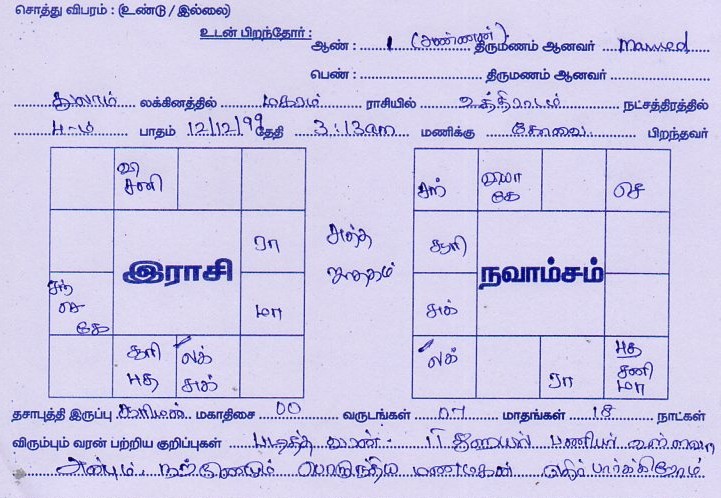 சொத்து விபரம் : (உண்டு / இல்லை)
உடன் பிறந்தோர் : ஆண் : 1 (அண்ணன்) திருமணம் ஆனவர் Married
பெண் : திருமணம் ஆனவர்
துலாம் லக்கினத்தில் மகரம் ராசியில் உத்திராடம் நட்சத்திரத்தில்
4-ம் பாதம் 12/12/99 தேதி 3:13am மணிக்கு கோவை பிறந்தவர்
சனி சந் கே செ
ரா சுத்த சூரி
இராசி ஜாதகம் நவாம்சம்
சந் செ கே மா சுக்
சூரி புத லக் சுக் லக் ரா புத சனி மா
தசாபுத்தி இருப்பு சூரியன் மகாதிசை 00 வருடங்கள் 07 மாதங்கள் 18 நாட்கள்
விரும்பும் வரன் பற்றிய குறிப்புகள் படித்த IT பணியில்
அன்பும், நற்குணமும் பொருந்திய மணமகன் எதிர் பார்க்கிறோம்